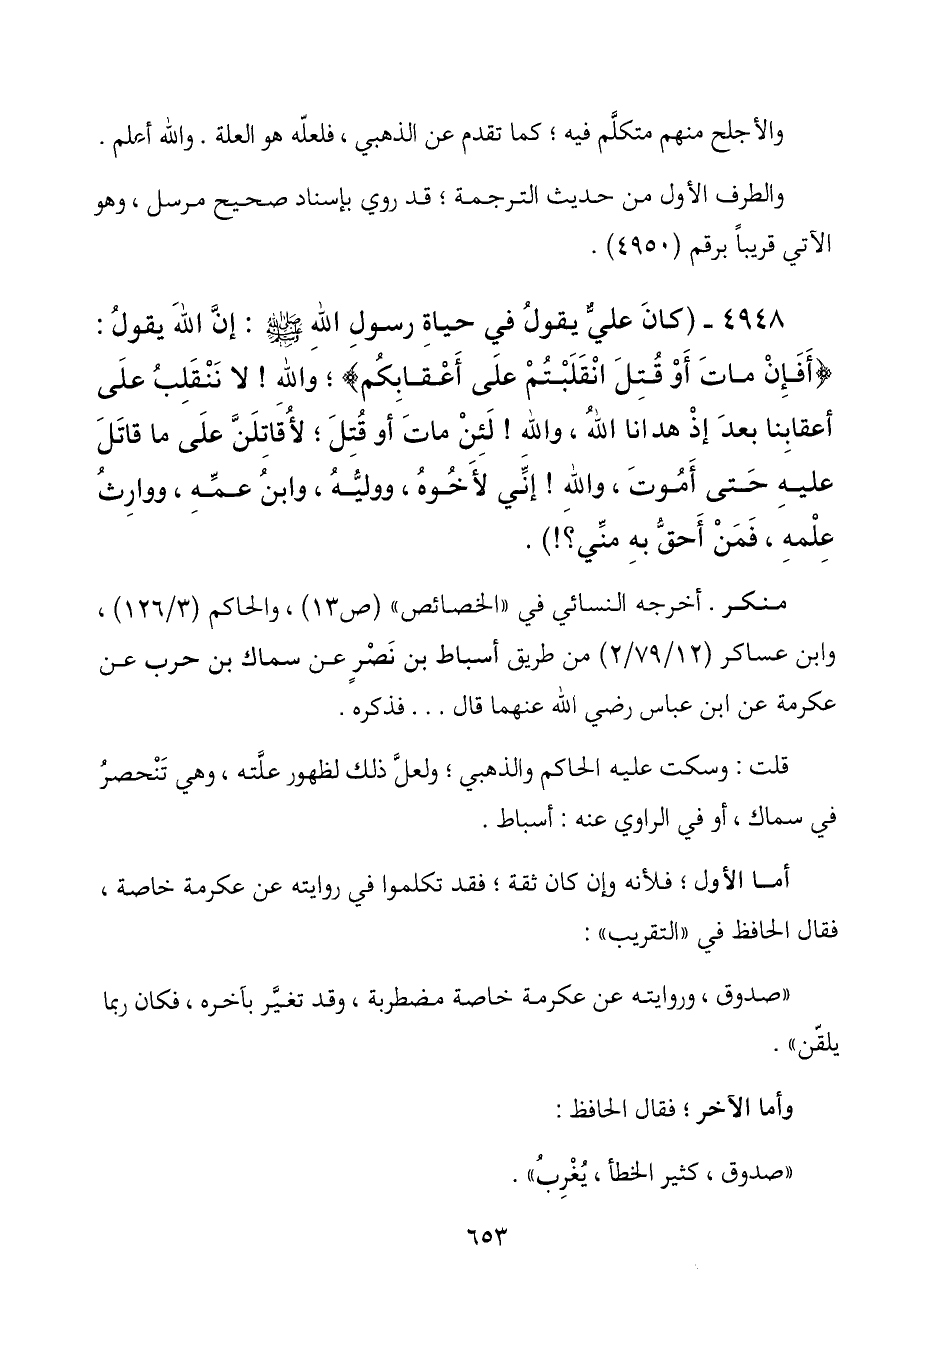 والأجلح منهم متكلَّم فيه ؛ كما تقدم عن الذهبي ، فلعلّه هو العلة . والله أعلم .
والطرف الأول من حديث الترجمة ؛ قد روي بإسناد صحيح مرسل ، وهو
الآتي قريباً برقم (٤٩٥٠) .
٤٩٤٨ ـ (كانَ عليٌّ يقولُ في حياةِ رسولِ اللهِ ﷺ : إنَّ اللهَ يقولُ :
﴿أَفَإِنْ ماتَ أَوْ قُتِلَ انْقَلَبْتُمْ علَى أَعْقابِكُم﴾ ؛ واللهِ ! لا نَنْقَلِبُ على
أعقابِنا بعدَ إذْ هدانا اللهُ ، واللهِ ! لَئِنْ ماتَ أو قُتِلَ ؛ لأُقاتِلَنَّ علَى ما قاتَلَ
عليهِ حَتى أَمُوتَ ، واللهِ ! إنِّي لأَخُوهُ ، ووليُّهُ ، وابنُ عمِّهِ ، ووارِثُ
عِلْمِهِ ، فَمَنْ أَحقُّ بِهِ مِنِّي؟!) .
منكر . أخرجه النسائي في «الخصائص» (ص١٣) ، والحاكم (١٢٦/٣) ،
وابن عساكر (٢/٧٩/١٢) من طريق أسباط بن نَصْرٍ عن سماك بن حرب عن
عكرمة عن ابن عباس رضي الله عنهما قال . . . فذكره .
قلت : وسكت عليه الحاكم والذهبي ؛ ولعلَّ ذلك لظهور علَّته ، وهي تَنْحصرُ
في سماك ، أو في الراوي عنه : أسباط .
أما الأول ؛ فلأنه وإن كان ثقة ؛ فقد تكلموا في روايته عن عكرمة خاصة ،
فقال الحافظ في «التقريب» :
«صدوق ، وروايته عن عكرمة خاصة مضطربة ، وقد تغيَّر بآخره ، فكان ربما
يلقّن» .
وأما الآخر ؛ فقال الحافظ :
«صدوق ، كثير الخطأ ، يُغْرِبُ» .
٦٥٣